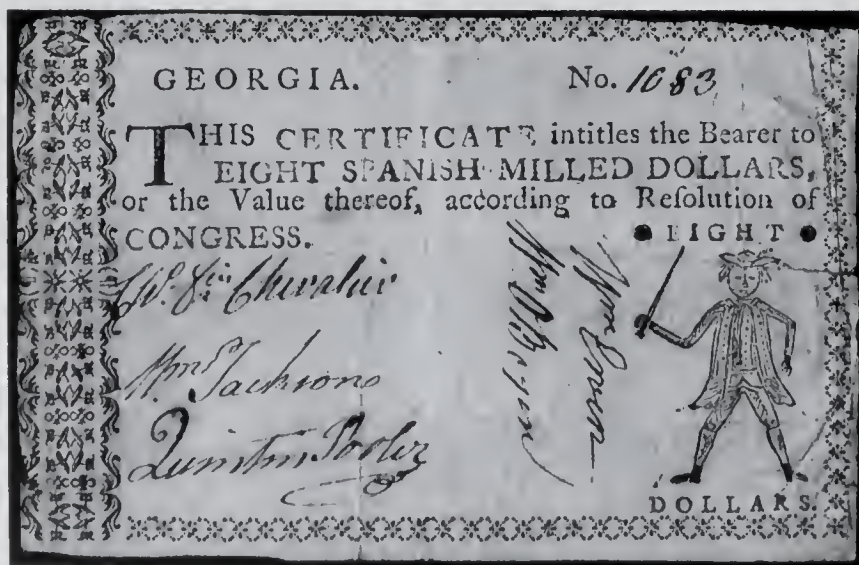 GEORGIA. No. 1083
THIS CERTIFICATE intitles the Bearer to
EIGHT SPANISH MILLED DOLLARS,
or the Value thereof, according to Reſolution of
CONGRESS.
EIGHT
Chevalier
Wm Jackson
Quinton Pooler
Wm
Wm
DOLLARS.